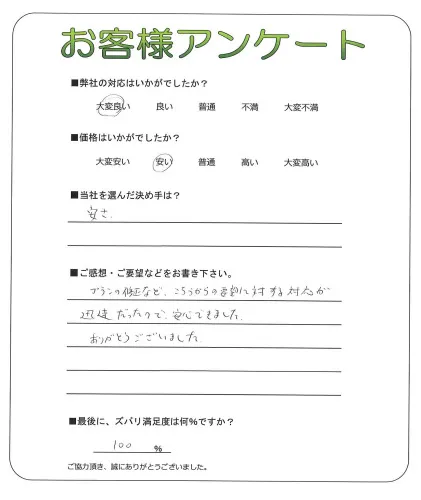 お客様アンケート
■弊社の対応はいかがでしたか？
大変良い 良い 普通 不満 大変不満
■価格はいかがでしたか？
大変安い 安い 普通 高い 大変高い
■当社を選んだ決め手は？
安さ.
■ご感想・ご要望などをお書き下さい。
プランの修正など、こちらからの要望に対する対応が
迅速だったので、安心できました.
ありがとうございました.
■最後に、ズバリ満足度は何％ですか？
100 ％
ご協力頂き、誠にありがとうございました。